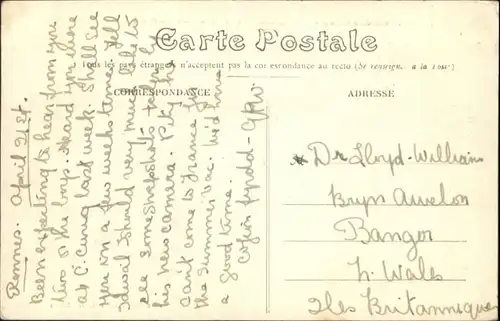 Carte Postale
Tous les pays étrangers n'acceptent pas la correspondance au recto (Se renseigner à la Poste)
CORRESPONDANCE
ADRESSE
Rennes. April 21st.
Been expecting to hear from you
two o' the boys. Heard you were
at C. last week. Shall see
you in a few weeks time. Tell
Idwal I should very much like to
see some snapshots taken by
his new camera. Pity he
can't come to France for
the summer vac. We'd have
a good time.
Cofion fyrdd -
Dr Lloyd-Williams
Bryn Awelon
Bangor
N. Wales
Iles Britanniques